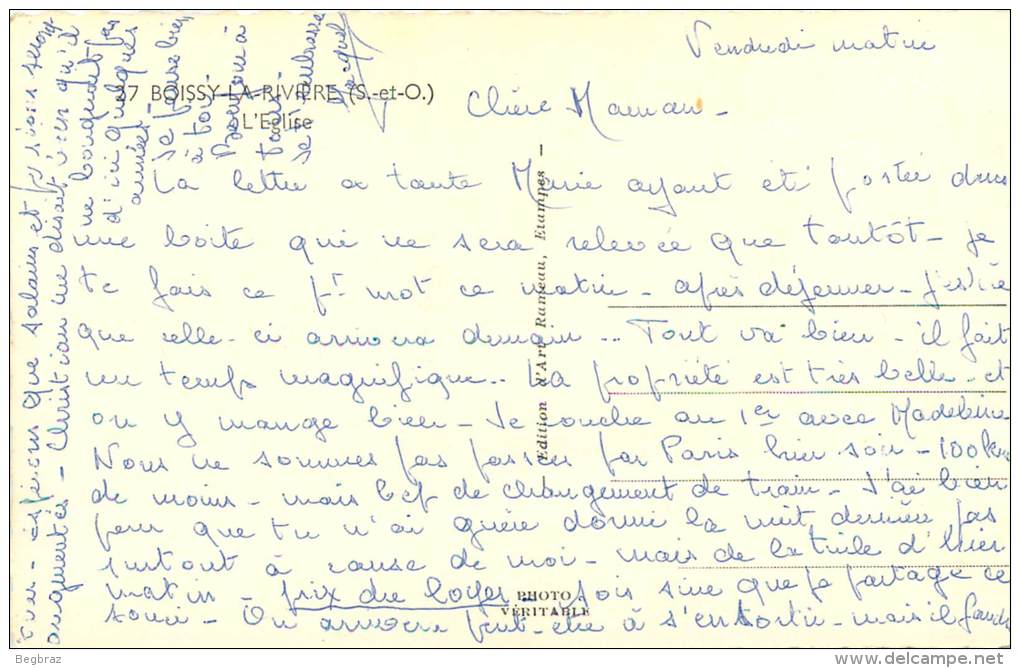 Vendredi matin
Chère Maman -
27 BOISSY-LA-RIVIÈRE (S.-et-O.)
L'Eglise
La lettre à tante Marie ayant été postée dans
une boîte qui ne sera relevée que tantôt - je
te fais ce pt mot ce matin - après déjeuner - J'espère
que celle-ci arrivera demain... Tout va bien - il fait
un temps magnifique.. La propriété est très belle - et
on y mange bien - Je couche au 1er avec Madeleine
Nous ne sommes pas passés par Paris hier soir - 100 km
de moins - mais bcp de changement de train - J'ai bien
peur que tu n'ai guère dormi la nuit dernière pas
surtout à cause de moi - mais de la tuile d'hier
matin - prix du loyer - sois sûre que je partage ce
souci - On arrivera peut-être à s'en sortir - mais il faudra
voir - espérons que salaires et seront
augmentés - Christiane me disait hier qu'il
ne bougerait pas
d'ici quelques
années -
Je te laisse bien
à toi -
Bonjour à
tous -
Je t'embrasse
Jacques
Edition d'Art Rameau, Etampes -
PHOTO
VÉRITABLE
Begbraz
delcampe.net